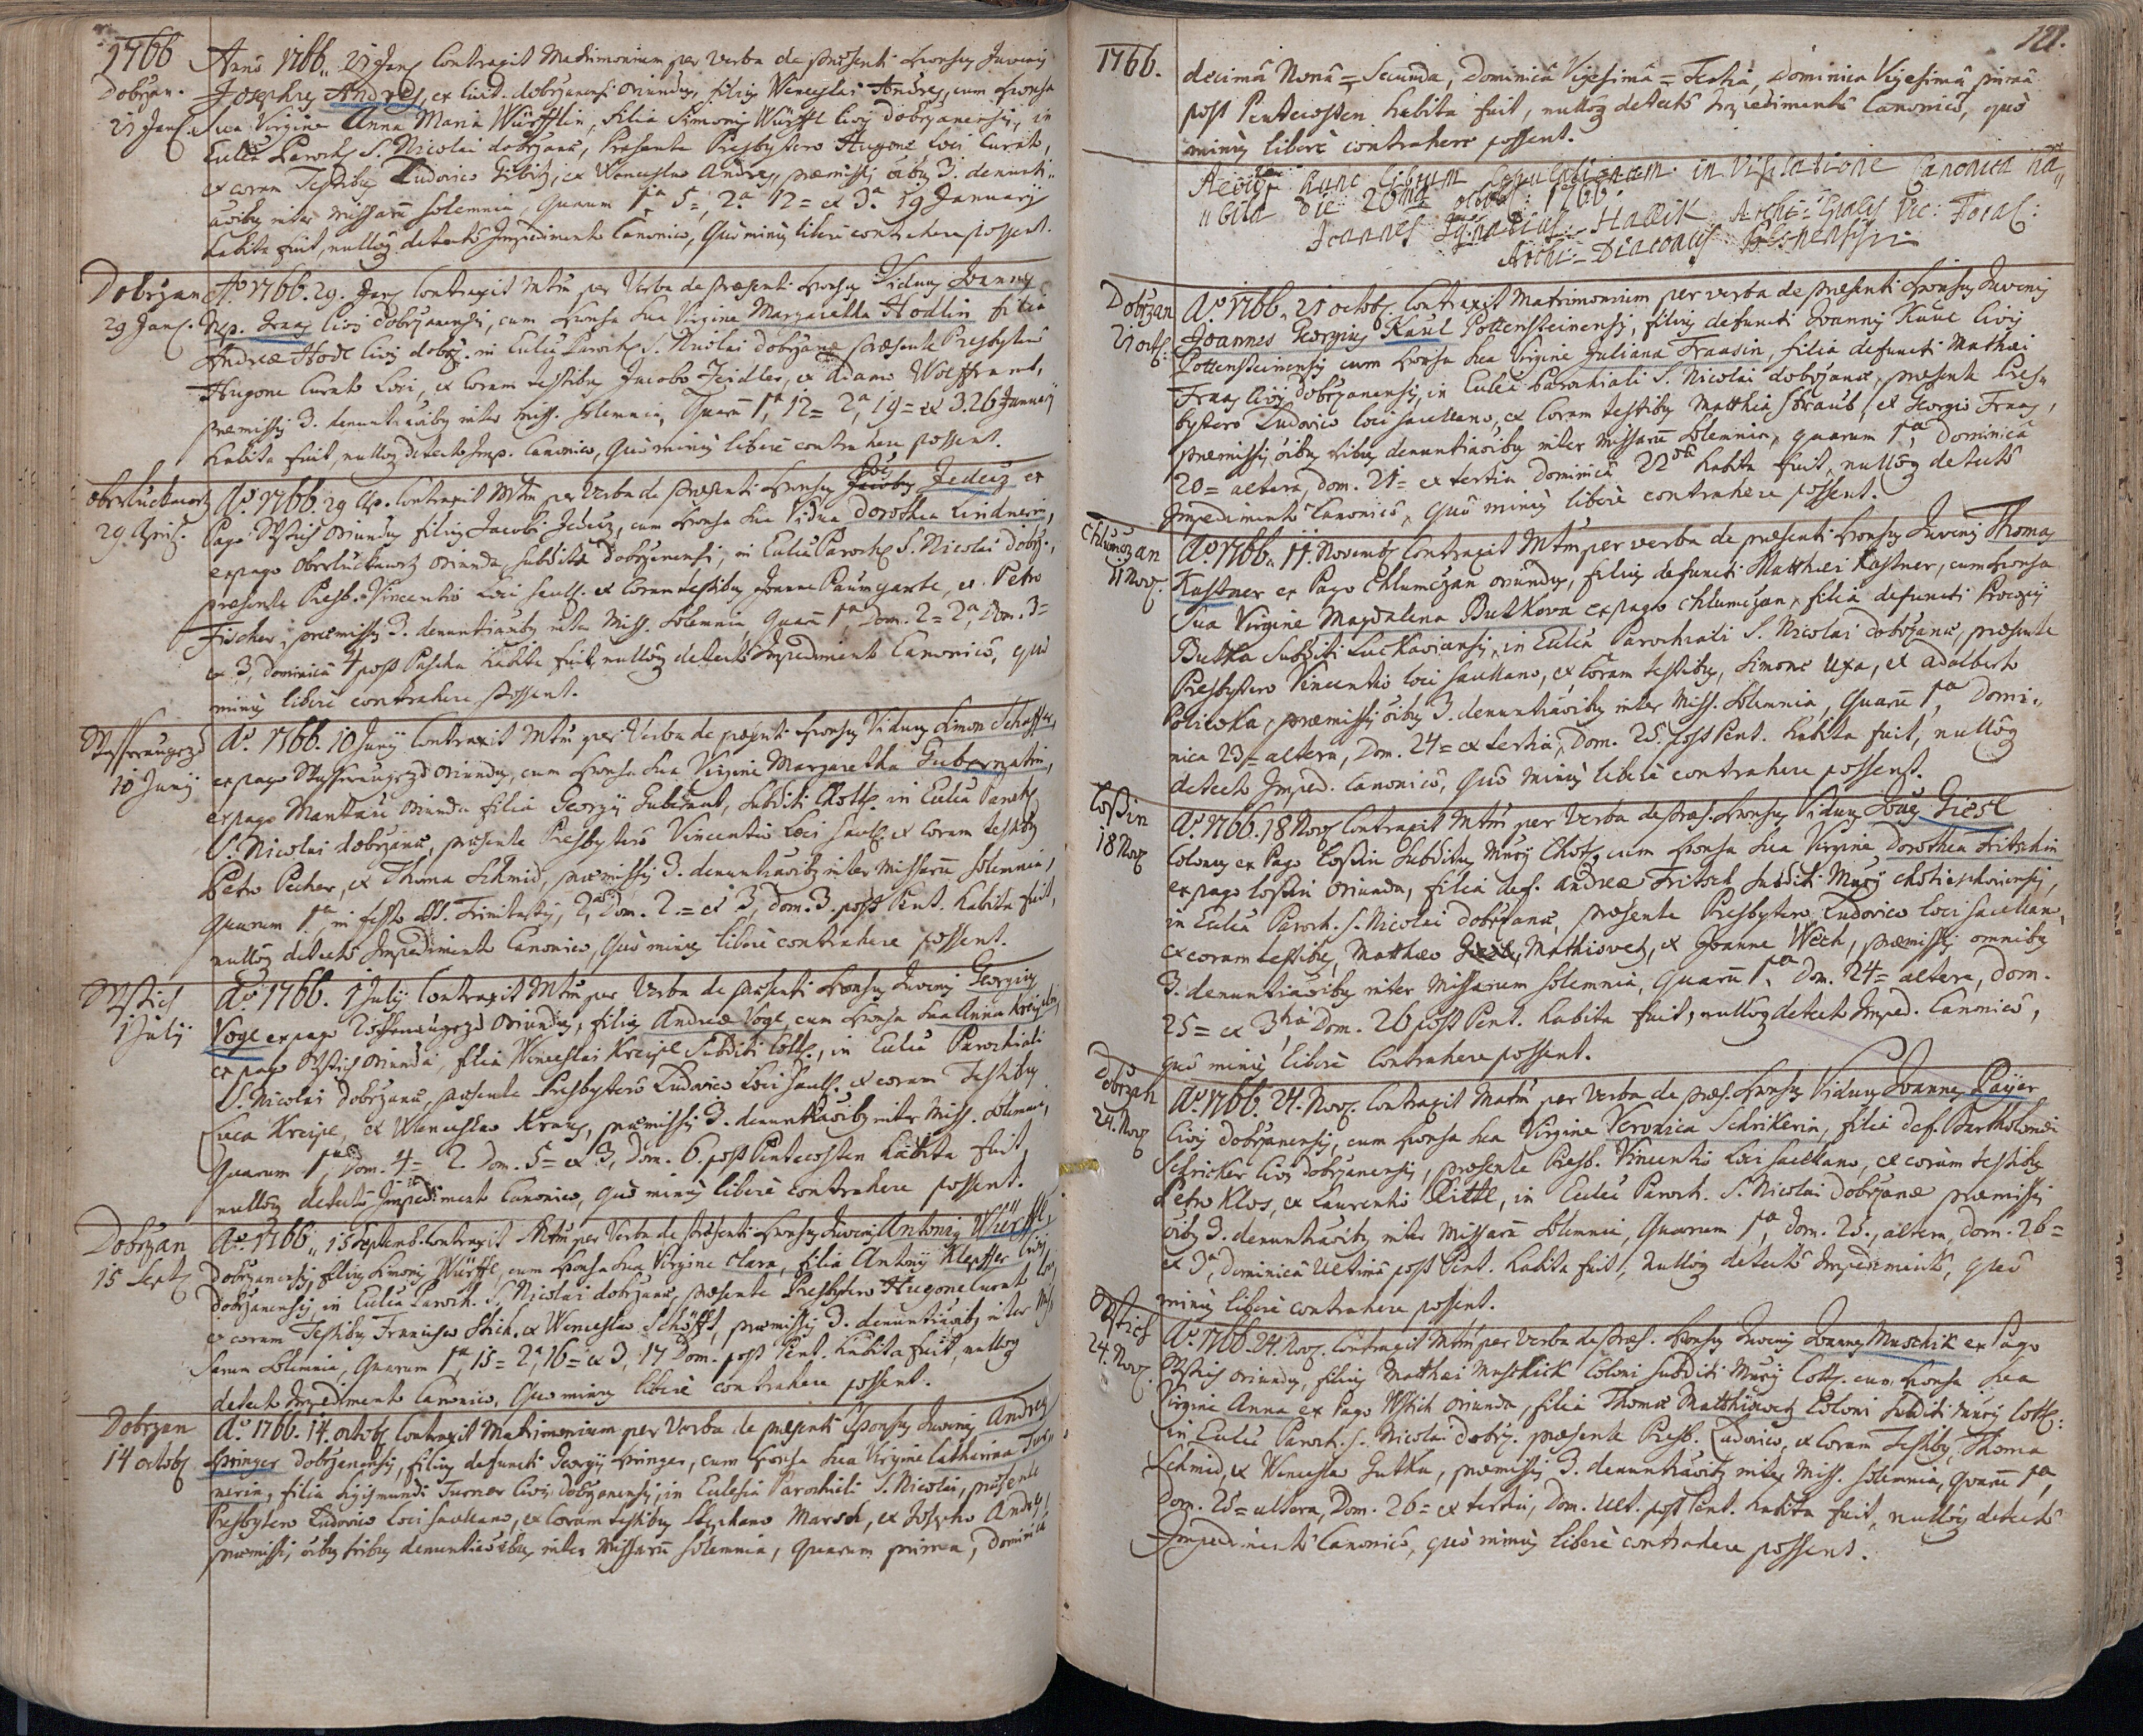 1766
Dobrzan.
21 Jan.
Anno 1766. 21 Jan. Contraxit Matrimonium per verba de præsenti Sponsus Juvenis
Josephus Andres, ex Civit. dobrzanensi oriundus, filius Wenceslai Andres, cum Sponsa
sua Virgine Anna Maria Würfflin, filia Simonis Würffl Civis dobrzanensis, in
Ecclia Paroch. S. Nicolai dobrzanæ, Præsente Presbytero Hugone loci Curato,
et coram Testibus Ludovico et Wenceslao Andres, præmissis oibus 3. denunti-
aõibus inter Missarũ solemnia, quarum 1ª 5= 2ª 12= et 3ª 19 January
habita fuit, nulloq detecto Impedimento Canonico, Quo minus liberè contrahere possent.
Dobrzan
29 Jan.
Aº 1766. 29. Jan. Contraxit Mtm per Verba de præsenti Sponsus Viduus Joannes
Nep. Fraas Civis dobrzanensis, cum Sponsa sua Virgine Margaretha Hodlin filia
Andreæ Hodl Civis dobrz. in Ecclia Paroch. S. Nicolai dobrzanæ præsente Presbytero
Hugone Curato Loci, et Coram testibus Jacobo Zeidler, et Adamo Wolffram,
præmissis 3. denuntiaõibus inter Miss. solemnia, Quarũ 1ª 12= 2ª 19= et 3. 26 January
habita fuit, nulloq detecto Imp. Canonico, Quò minus liberè contrahere possent.
29. April.
Aº 1766. 29 Ap. Contraxit Mtm per Verba de præsenti Sponsus Jacobus Joes Jedeus ex
Pago oriundus filius Jacobi Jedeus, cum Sponsa sua Vidua Dorothea Lindnerin,
ex pago oriunda, subdita dobrzanensi, in Ecclia Paroch. S. Nicolai dobrz.,
præsente Presb. Vincentio Loci Sacell. et Coram testibus Joanne Paumgartl, et Petro
Fischer, præmissis 3. denuntiaõibus inter Miss. Solemnia Quarũ 1ª Dom. 2= 2ª, Dom. 3=
et 3, Dominicâ 4 post Pascha habita fuit, nulloq detecto Impedimento Canonico, quò
minus liberè contrahere possent.
10 Junij
Aº. 1766. 10 Junij Contraxit Mtm per Verba de præsenti Sponsus Viduus Simon Schaffer,
ex pago oriundus, cum Sponsa sua Virgine Margaretha Gubernatin,
ex pago Mantau oriunda filia Georgij Gubernat, subditi Chott. in Ecclia Paroch.
S. Nicolai dobrzanæ, præsente Presbytero Vincentio Loci Sacell. et Coram testibus
Petro Pecher, et Thoma Schmid, præmissis 3. denuntiaõibus inter Missarũ solemnia,
Quarum 1ª, in festo SS. Trinitatis, 2, Dom. 2.= et 3, Dom. 3. post Pent. habita fuit,
nulloq detecto Impedimento Canonico, Quò minus liberè contrahere possent.
1 Julij
Aº 1766. 1 Julij Contraxit Mtm per Verba de præsenti Sponsus Juvenis Georgius
Vogl ex pago oriundus, filius Andreæ Vogl, cum Sponsa sua Anna
ex pago oriunda, filia Wenceslai Kreipl Subditi Cott., in Ecclia Parochiali
S. Nicolai dobrzanæ, præsente Presbytero Ludovico Loci Sacell. et coram Testibus
Luca Kreipl, et Wenceslao Kraus, præmissis 3. denuntiaõibus inter Miss. Solemnia,
Quarum 1ª, Dom. 4= 2. Dom. 5= et 3, Dom. 6. post Pentecosten habita fuit,
nulloq detecto Impedimento Canonico, quò minus liberè contrahere possent.
Dobrzan
15 Sept.
Aº. 1766. 15 Septemb. Contraxit Mtm per Verba de præsenti Sponsus Juvenis Antonius Würffl,
dobrzanensis, filius Simonis Würffl, cum Sponsa sua Virgine Clara, filia Antonij Klepffer Civis
dobrzanensis in Ecclia Paroch. S. Nicolai dobrzanæ, præsente Presbytero Hugone Curato loci
et coram Testibus Francisco Stich, et Wenceslao Schöffl, præmissis 3. denuntiaõibus inter Mis-
sarum Solemnia, Quarum 1ª, 15= 2ª, 16= et 3, 17 Dom. post Pent. habita fuit, nulloq
detecto Impedimento Canonico, Quo minus liberè contrahere possent.
Dobrzan
14 octob.
Aº. 1766. 14. octob. Contraxit Matrimonium per Verba de præsenti Sponsus Juvenis Andreas
Springer dobrzanensis, filius defuncti Georgij Springer, cum Sponsa sua Virgine Catharina Tur-
nerin, filia Sigismundi Turner Civis dobrzanensis, in Ecclesia Parochiali S. Nicolai, præsente
Presbytero Ludovico loci Sacellano, et Coram testibus Stephano Marsch, et Josepho Andres,
præmissis oibus tribus denuntiaõibus inter Missarũ solemnia, Quarum prima, Dominicâ
1766.
121.
decimâ Nonâ = Secunda, Dominicâ Vigesimâ = Tertia, Dominica Vigesimâ primâ
post Pentecosten habita fuit, nulloq detectô Impedimentô Canonicô, quò
minus liberè contrahere possent.
hunc librum Copulationum in Visitatione Canonica ha-
bita die 20ma octob: 1766.
Joannes Ignatius Hallik Archi- Vic: Foral:
Archi-Diaconus
Dobrzan
21 octb.
Aº. 1766. 21 octob. Contraxit Matrimonium per verba de præsenti Sponsus Juvenis
Joannes Georgius Kaul Pottensteinensis, filius defuncti Joannis Kaul Civis
Pottensteinensis cum Sponsa sua Virgine Juliana Fraasin, filia defuncti Mathæi
Fraas Civis dobrzanensis, in Ecclia Parochiali S. Nicolai dobrzanæ, præsente Pres-
bytero Ludovico loci Sacellano, et Coram testibus Matthia Straub, et Georgio Fraas,
præmissis oibus tribus denuntiaõibus inter Missarũ Solemnia, quarum 1ª, Dominicâ
20= altera, Dom. 21= et tertia Dominicâ 22dâ habita fuit, nulloq detectô
Impedimentô Canonicô, quò minus liberè contrahere possent.
Chlumczan
11 Nov.
Aº. 1766. 11. Novemb. Contraxit Mtm per verba de præsenti Sponsus Juvenis Thomas
Kastner ex Pago Chlumczan oriundus, filius defuncti Matthæi Kastner, cum Sponsa
Sua Virgine Magdalena Butkova ex pago Chlumczan, filia defuncti Procopij
Butka Subditi Luckaviensis, in Ecclia Parochiali S. Nicolai dobrzanæ, præsente
Presbytero Vincentio loci Sacellano, et Coram testibus, Simone Uxa, et Adalberto
Poliwka, præmissis oibus 3. denuntiaõibus inter Miss. Solemnia, Quarũ 1ª, Domi-
nica 23= altera, Dom. 24= et tertia, Dom. 25. post Pent. habita fuit, nulloq
detecto Imped. Canonicô, Quò minus liberè contrahere possent.
Loßin
18 Nov.
Aº. 1766. 18 Nov. Contraxit Mtm per Verba de præs. Sponsus Viduus Joães Giesl
Colonus ex Pago Loßin Subditus Mrij Chot. cum Sponsa sua Virgine Dorothea Fritschin
ex pago Loßin oriunda, filia def. Andreæ Fritsch Subditi Mrij Chotieschoviensis,
in Ecclia Paroch. S. Nicolai dobrzanæ, præsente Presbytero Ludovico Loci Sacellano,
et coram testibus, Matthæo Mathiovetz, et Joanne Wech, præmissis omnibus
3. denuntiaõibus inter Missarum solemnia, Quarũ 1ª, Dom. 24= altera, Dom.
25= et 3tia Dom. 26 post Pent. habita fuit, nulloq detecto Imped. Canonicô,
quò minus liberè Contrahere possent.
Dobrzan
24. Nov.
Aº. 1766. 24. Nov. Contraxit Matm per Verba de præs. Sponsus Viduus Joannes Payer
Civis dobrzanensis, cum Sponsa sua Virgine Veronica Schrikerin, filia def. Bartholomæi
Schricker Civis dobrzanensis, præsente Presb. Vincentio Loci Sacellano, et coram testibus
Petro Klos, et Laurentio Rittl, in Ecclia Paroch. S. Nicolai dobrzanæ præmissis
oibus 3. denuntiaõibus inter Missarũ Solemnia, Quarum 1ª, Dom. 25., altera, Dom. 26=
et 3ª, Dominicâ Ultimâ post Pent. habita fuit, nulloq detectô Impedimentô, quò
minus liberè contrahere possent.
24. Nov.
Aº. 1766. 24. Nov. Contraxit Mtm per Verba de præs. Sponsus Juvenis Joannes Muschik ex Pago
oriundus, filius Matthæi Muschick Coloni Subditi Mrij Cott. cum Sponsa sua
Virgine Anna ex Pago oriunda, filia Thomæ Matthiovetz Coloni Subditi Mrij Cott:
in Ecclia Paroch. S. Nicolai dobrz. præsente Presb. Ludovico, et Coram Testibus, Thoma
Schmid, et Wenceslao Gutka, præmissis 3. denuntiaõibus inter Miss. solemnia, Quarũ 1ª,
Dom. 25= altera, Dom. 26= et tertia, Dom. Ult. post Pent. habita fuit, nulloq detectô
Impedimentô Canonicô, quò minus liberè contrahere possent.